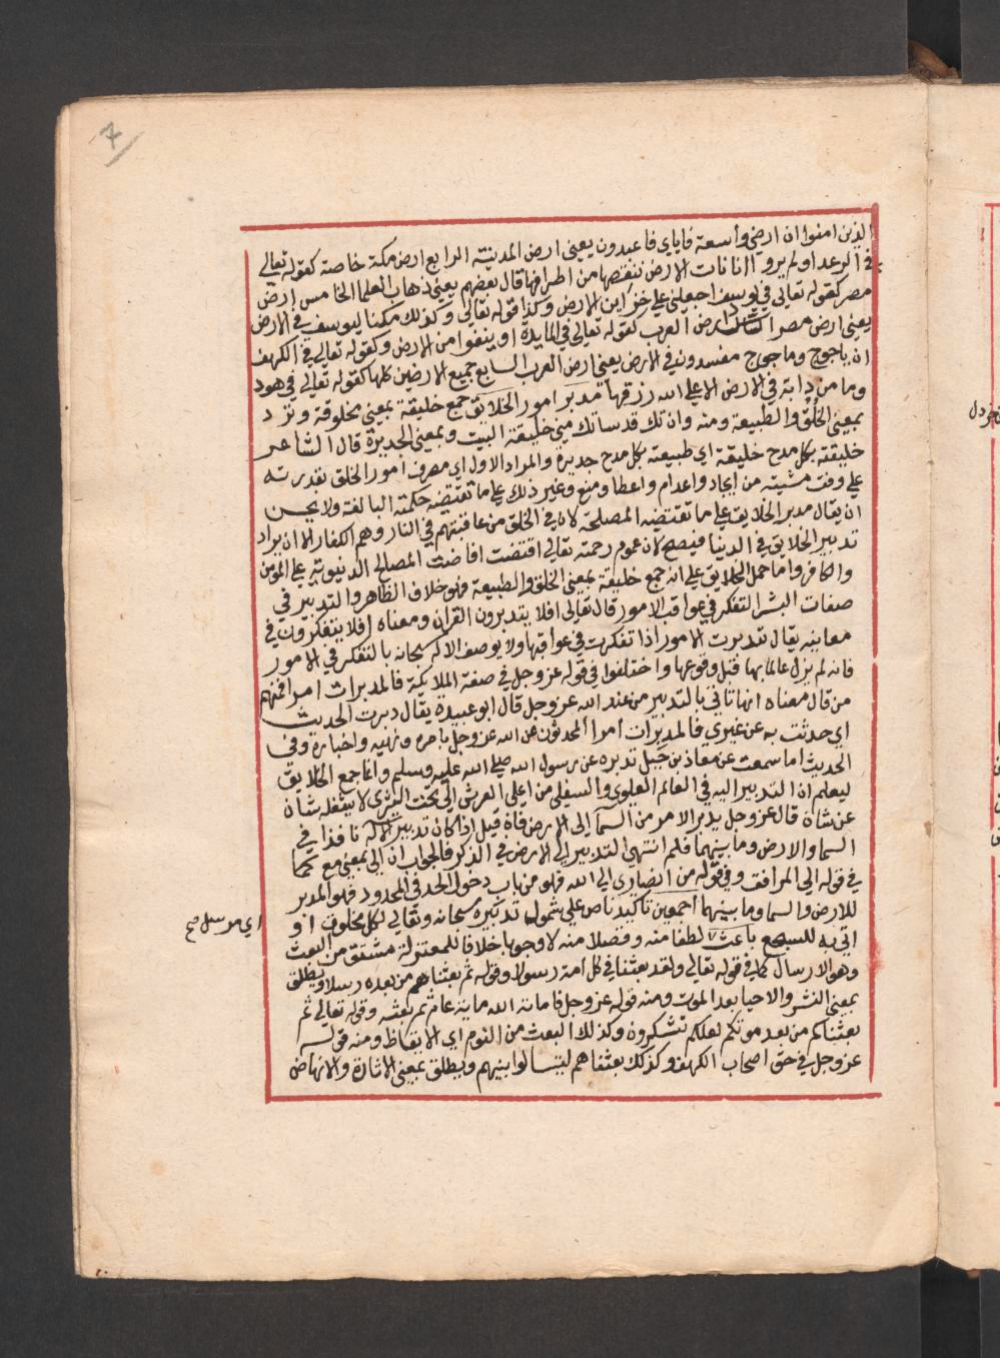 7
الذين امنوا ان ارضي واسعة فاياي فاعبدون يعني ارض المدينة الرابع ارض مكة خاصة كقوله تعالي
في الرعد اولم يروا انا نات الارض ننقصها من اطرافها قال بعضهم يعني ذهاب العلما الخامس ارض
مصر كقوله تعالي في يوسف اجعلني علي خزاين الارض وكذا قوله تعالي وكذلك مكنا ليوسف في الارض
يعني ارض مصر السادس ارض العرب كقوله تعالي في المايدة او ينفوا من الارض وكقوله تعالي في الكهف
ان ياجوج وماجوج مفسدون في الارض يعني ارض العرب السابع جميع الارضين كلها كقوله تعالي في هود
وما من دابة في الارض الا علي الله رزقها مدبر امور الخلايق جمع خليقة بمعني مخلوقة وترد
بمعني الخلق والطبيعة ومنه وان تك قد ساتك مني خليقة البيت وبمعني الجديرة قال الشاعر
خليقته بكل مدح خليقة اي طبيعته بكل مدح جديرة والمراد الاول اي مصرف امور الخلق بقدرته
علي وفق مشيته من ايجاد واعدام واعطا ومنع وغير ذلك علي ما تقتضيه حكمته البالغة ولا يحسن
ان يقال مدبر الخلايق علي ما تقتضيه المصلحة لان في الخلق من عاقبتهم في النار وهم الكفار الا ان يراد
تدبير الخلايق في الدنيا فيصح لان عموم رحمته تعالي اقتضت افاضت المصالح الدنيوية علي المومن
والكافر واما حمل الخلايق علي انه جمع خليقة بمعني الخلق والطبيعة فهو خلاف الظاهر والتدبير في
صفات البشر التفكر في عواقب الامور قال تعالي افلا يتدبرون القران ومعناه افلا يتفكرون في
معانيه يقال تدبرت الامور اذا تفكرت في عواقبها ولا يوصف الاله سبحانه بالتفكر في الامور
فانه لم يزل عالما بها قبل وقوعها واختلفوا في قوله عز وجل في صفة الملايكة فالمدبرات امرا فمنهم
من قال معناه انها تاتي بالتدبير من عند الله عز وجل قال ابو عبيدة يقال دبرت الحديث
اي حدثت به عن غيري فالمدبرات امرا المحدثون عن الله عز وجل بامره ونهيه واخباره وفي
الحديث اما سمعت عن معاذ بن جبل تدبره عن رسول الله صلي الله عليه وسلم وانما جمع الخلايق
ليعلم ان التدبير اليه في العالم العلوي والسفلي من اعلي العرش الي تحت الثري لا يشغله شان
عن شان قال عز وجل يدبر الامر من السما الي الارض فان قيل اذا كان تدبير الاله نافذا في
السما والارض وما بينهما فلم انتهي التدبير الي الارض في الذكر فالجواب ان الي بمعني مع كما
في قوله الي المرافق وفي قوله من انصاري الي الله فهو من باب دخول الحد في المحدود فهو المدبر
للارض والسما وما بينهما اجمعين تاكيد ناص علي شمول تدبيره سبحانه وتعالي لكل مخلوق او
اتي به للسجع باعث لطفا منه وفضلا منه لا وجوبا خلافا للمعتزلة مشتق من البعث
وهو الارسال كما في قوله تعالي ولقد بعثنا في كل امة رسولا وقوله ثم بعثنا من بعده رسلا ويطلق
بمعني النشر والاحيا بعد الموت ومنه قوله عز وجل فاماته الله ماية عام ثم بعثه وقوله تعالي ثم
بعثناكم من بعد موتكم لعلكم تشكرون وكذلك البعث من النوم اي الايقاظ ومنه قوله
عز وجل في حق اصحاب الكهف وكذلك بعثناهم ليتسالوا بينهم ويطلق بمعني الاثارة والانهاض
اي مرسل صح